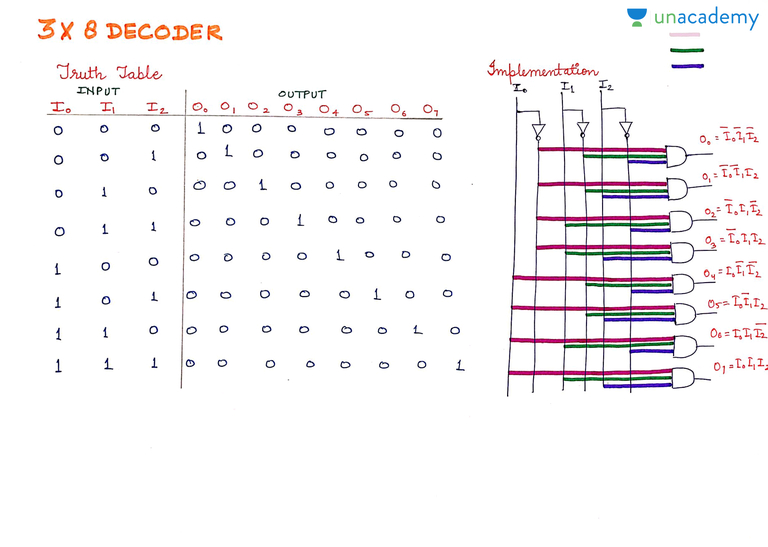 3 X 8 DECODER
unacademy
Truth Table
INPUT OUTPUT
I₀ I₁ I₂ O₀ O₁ O₂ O₃ O₄ O₅ O₆ O₇
0 0 0 1 0 0 0 0 0 0 0
0 0 1 0 1 0 0 0 0 0 0
0 1 0 0 0 1 0 0 0 0 0
0 1 1 0 0 0 1 0 0 0 0
1 0 0 0 0 0 0 1 0 0 0
1 0 1 0 0 0 0 0 1 0 0
1 1 0 0 0 0 0 0 0 1 0
1 1 1 0 0 0 0 0 0 0 1
Implementation
I₀ I₁ I₂
O₀ = I̅₀ I̅₁ I̅₂
O₁ = I̅₀ I̅₁ I₂
O₂ = I̅₀ I₁ I̅₂
O₃ = I̅₀ I₁ I₂
O₄ = I₀ I̅₁ I̅₂
O₅ = I₀ I̅₁ I₂
O₆ = I₀ I₁ I̅₂
O₇ = I₀ I₁ I₂